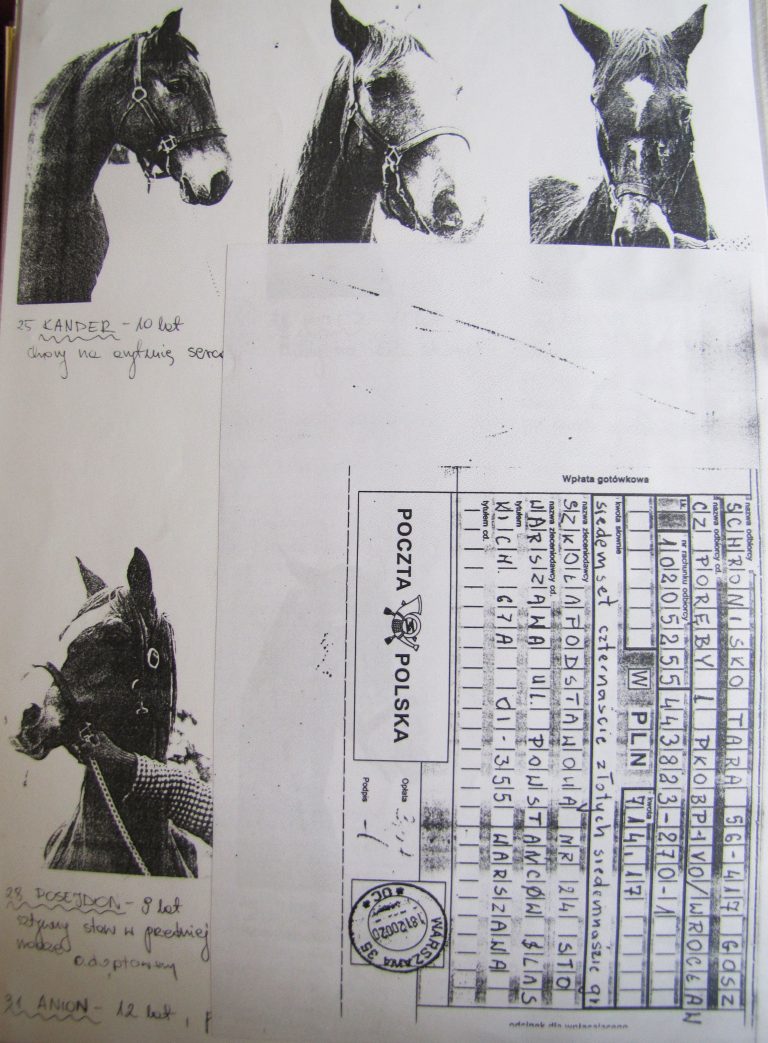 25 KANDER - 10 lat
chory na arytmię serca
28 POSEJDON - 9 lat
sztywny staw w przedniej
nodze
adoptowany
31 ANION - 12 lat,
Wpłata gotówkowa
nazwa odbiorcy
SCHRONISKO TARA 56-417 GOSZ
nazwa odbiorcy cd.
CZ PORĘBY 1 PKOBP4VO/WROCŁAW
l.k. nr rachunku odbiorcy
10205255443883-270-1
W PLN
kwota
714,17
kwota słownie
siedemset czternaście złotych siedemnaście gr
nazwa zleceniodawcy
SZKOŁA PODSTAWOWA NR 24 STO
nazwa zleceniodawcy cd.
WARSZAWA UL. POWSTAŃCÓW ŚLĄS
tytułem
KICH 67A 01-355 WARSZAWA
tytułem cd.
POCZTA POLSKA
Opłata
Podpis
WARSZAWA 35
18122002
UC
odcinek dla wpłacającego